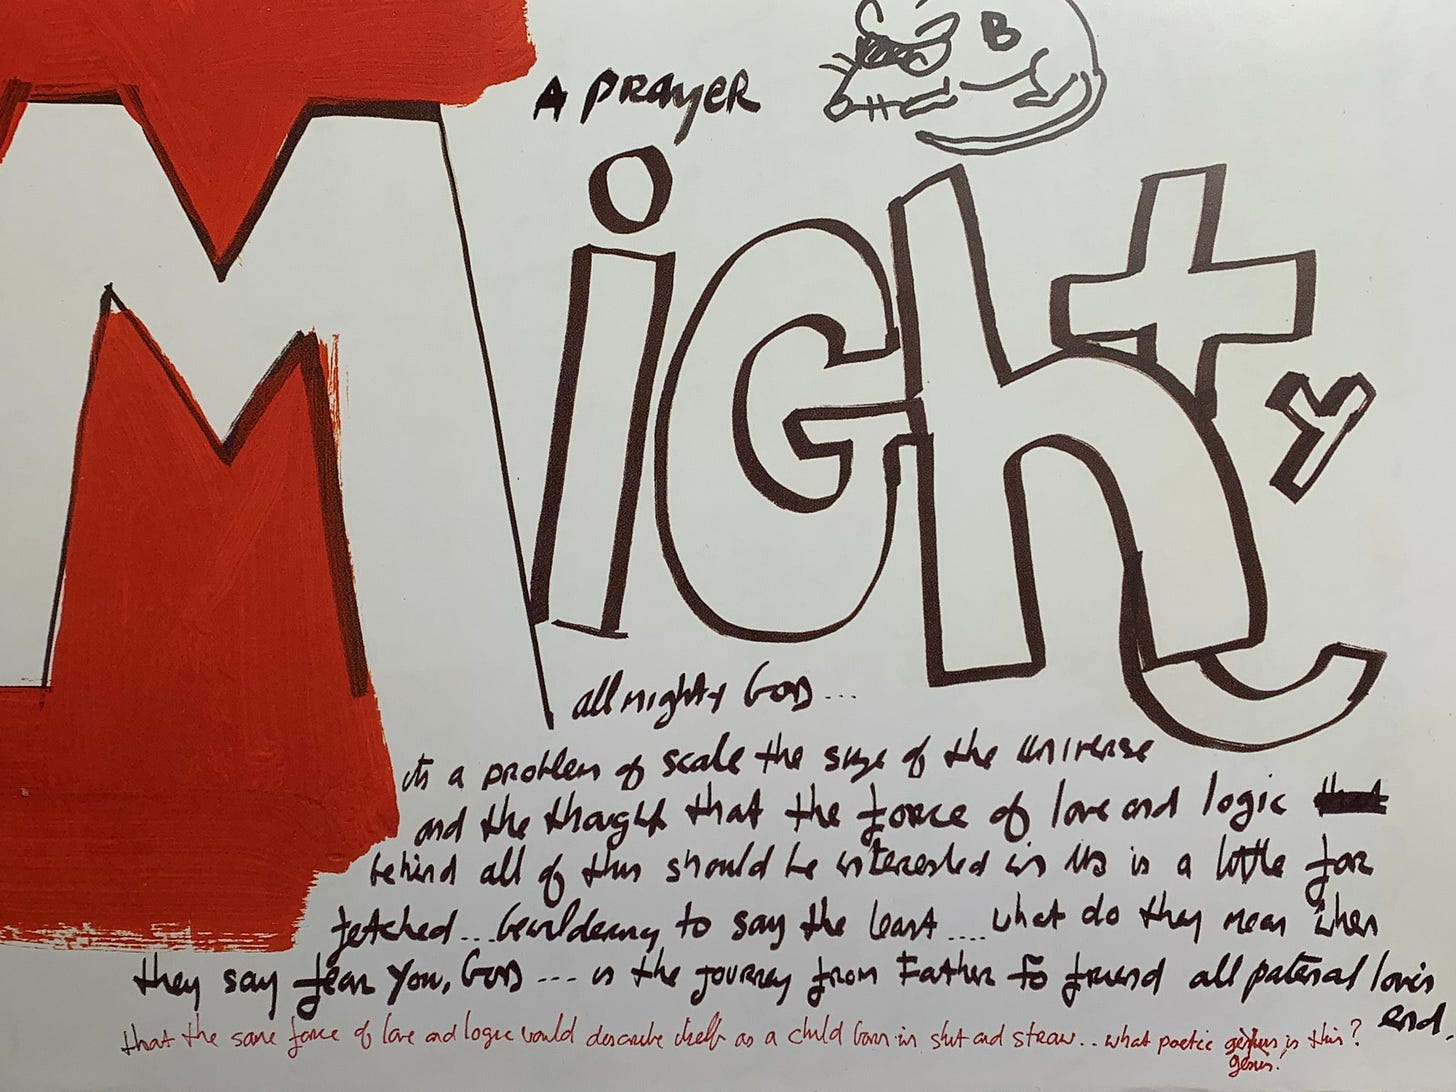 A PRayeR
B
MiGhty
all mighty God...
its a problem of scale the size of the universe
and the thought that the force of love and logic
behind all of this should be interested in us is a little far
fetched... bewildering to say the least.... what do they mean when
they say fear You, God... is the journey from Father to friend all paternal loves
end.
that the same force of love and logic would describe itself as a child born in shit and straw.. what poetic genius is this?
genius!